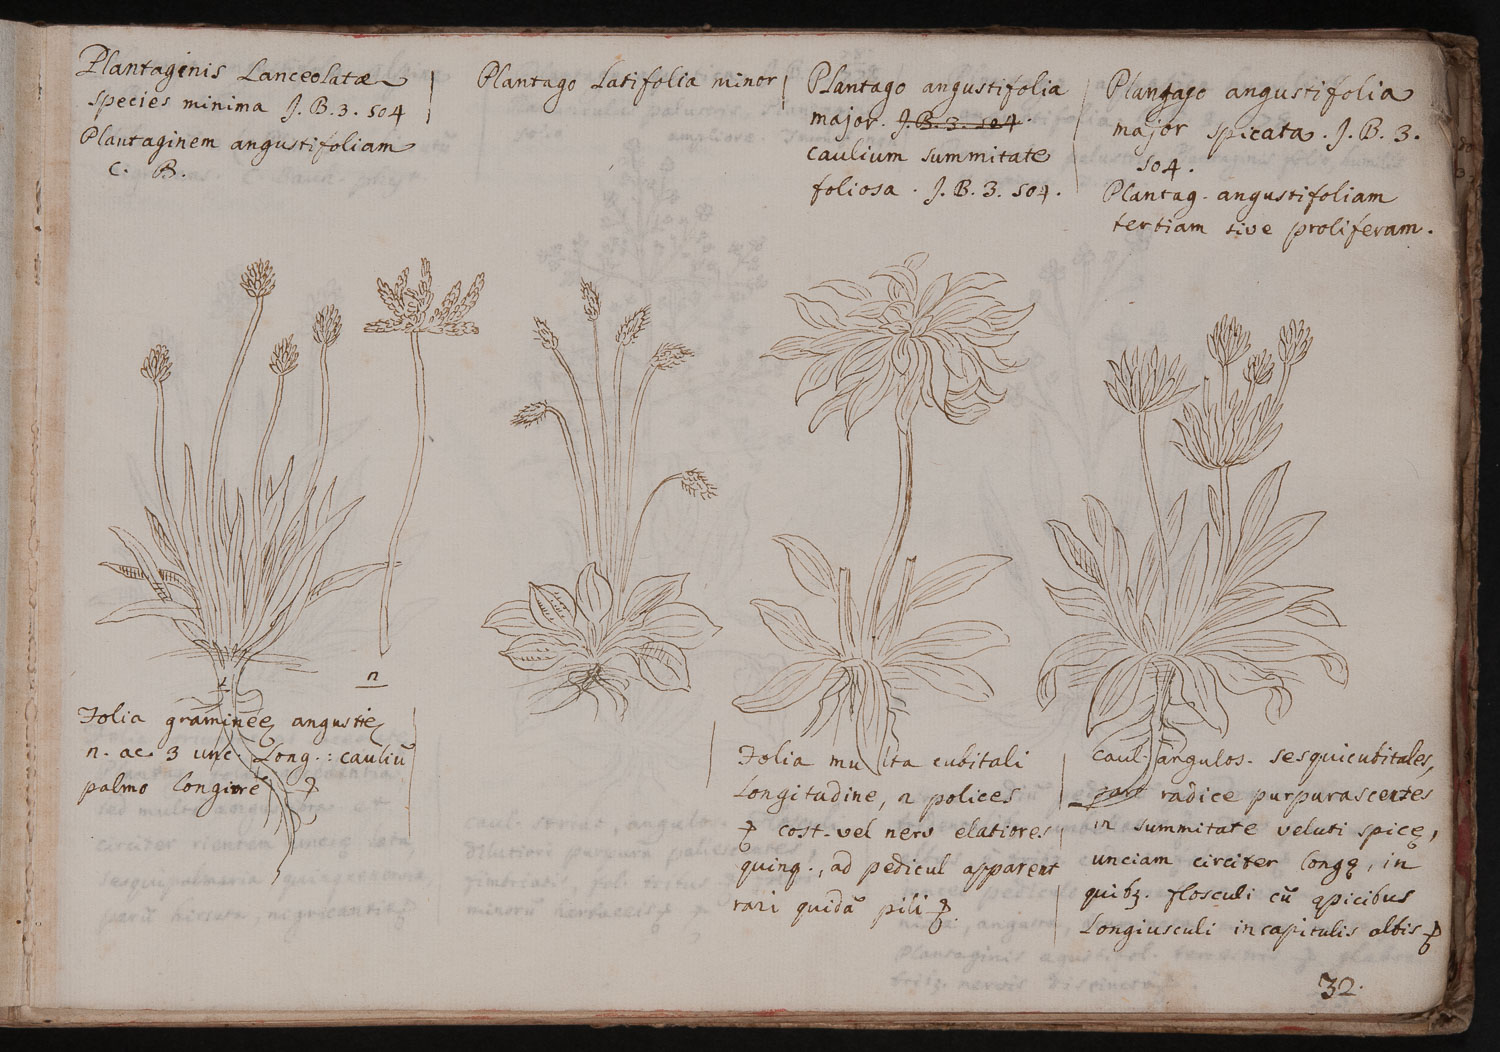 Plantaginis Lanceolatæ
species minima J. B. 3. 504
Plantaginem angustifoliam
C. B.
Plantago Latifolia minor
Plantago angustifolia
major. J. B. 3. 504.
caulium summitate
foliosa. J. B. 3. 504.
Plantago angustifolia
major spicata. J. B. 3.
504.
Plantag. angustifoliam
tertiam sive proliferam.
n
Folia gramineę angustię
n. ac. 3 unc. Long.: cauliū
palmo longiore
Folia multa cubitali
Longitudine, n polices
cost. vel nerv elatiores
quinq., ad pedicul apparent
rari quidā pili
caul. angulos. sesquicubitales,
radice purpurascentes
in summitate veluti spicę,
unciam circiter longę, in
quibz. flosculi cū apicibus
Longiusculi in capitulis albis
32.